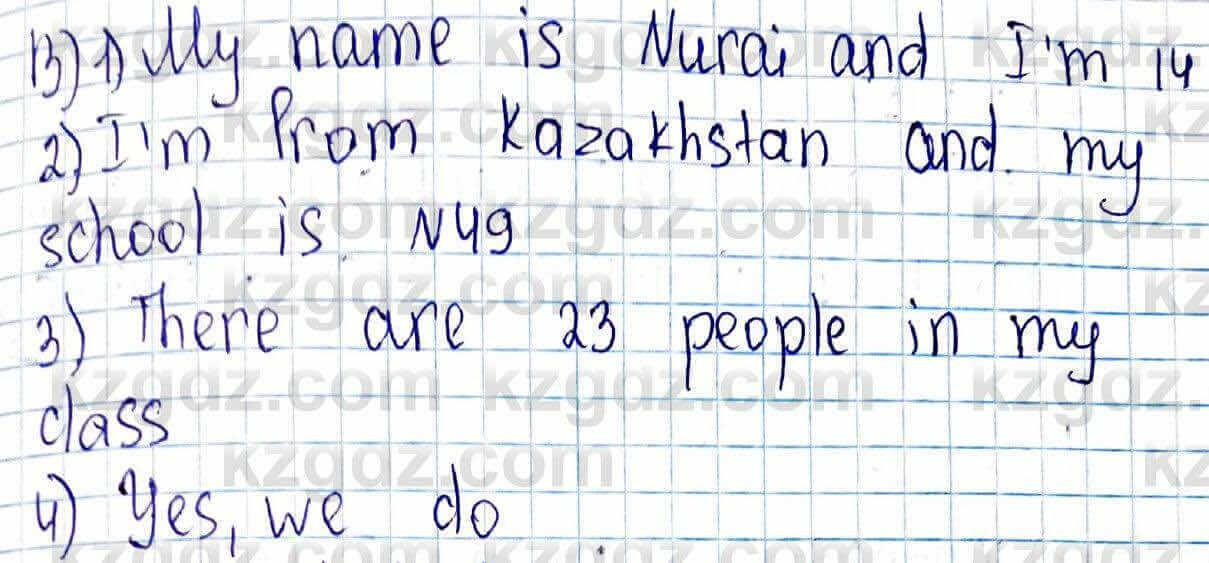 B) 1) My name is Nurai and I'm 14
2) I'm from Kazakhstan and my
school is N49
3) There are 23 people in my
class
4) Yes, we do